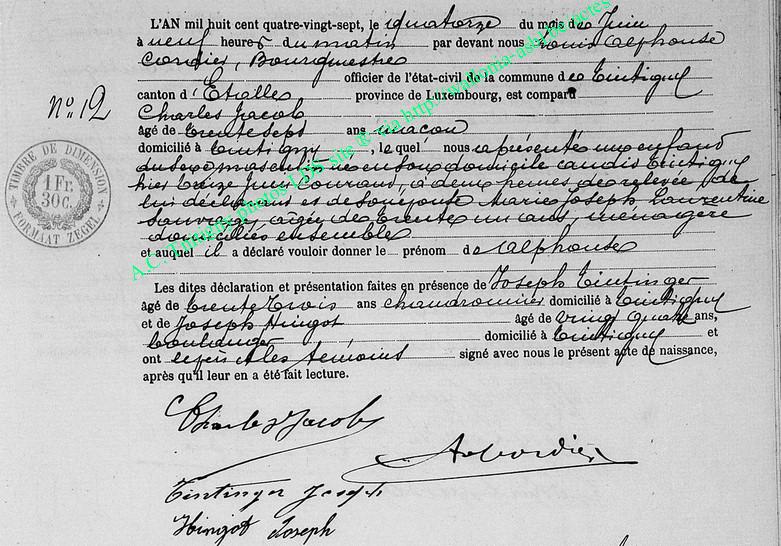 L'AN mil huit cent quatre-vingt-sept, le quatorze du mois de Juin
à neuf heures du matin par devant nous Louis Alphonse
Cordier, Bourgmestre
officier de l'état-civil de la commune de Tintigny
canton d'Etalle province de Luxembourg, est comparu
N° 12
Charles Jacob
âgé de trente sept ans maçon
domicilié à Tintigny, lequel nous a présenté un enfant
du sexe masculin né en son domicile audit Tintigny
hier treize Juin courant, à deux heures de relevée, de
lui déclarant et de son épouse Marie Joseph Laurentine
âgée de trente un ans, ménagère
domiciliés ensemble
et auquel il a déclaré vouloir donner le prénom d'Alphonse
Les dites déclaration et présentation faites en présence de Joseph Tintinger
âgé de trente trois ans chaudronnier domicilié à Tintigny
et de Joseph Hingot âgé de vingt quatre ans,
boulanger domicilié à Tintigny et
ont le père et les témoins signé avec nous le présent acte de naissance,
après qu'il leur en a été fait lecture.
TIMBRE DE DIMENSION
1 Fr.
30C.
FORMAAT ZEGEL
A.C. Tintigny photos LDS site & via http://wallonia-asbl.be/actes
Charles Jacob
A Cordier
Tintinger Joseph
Hingot Joseph